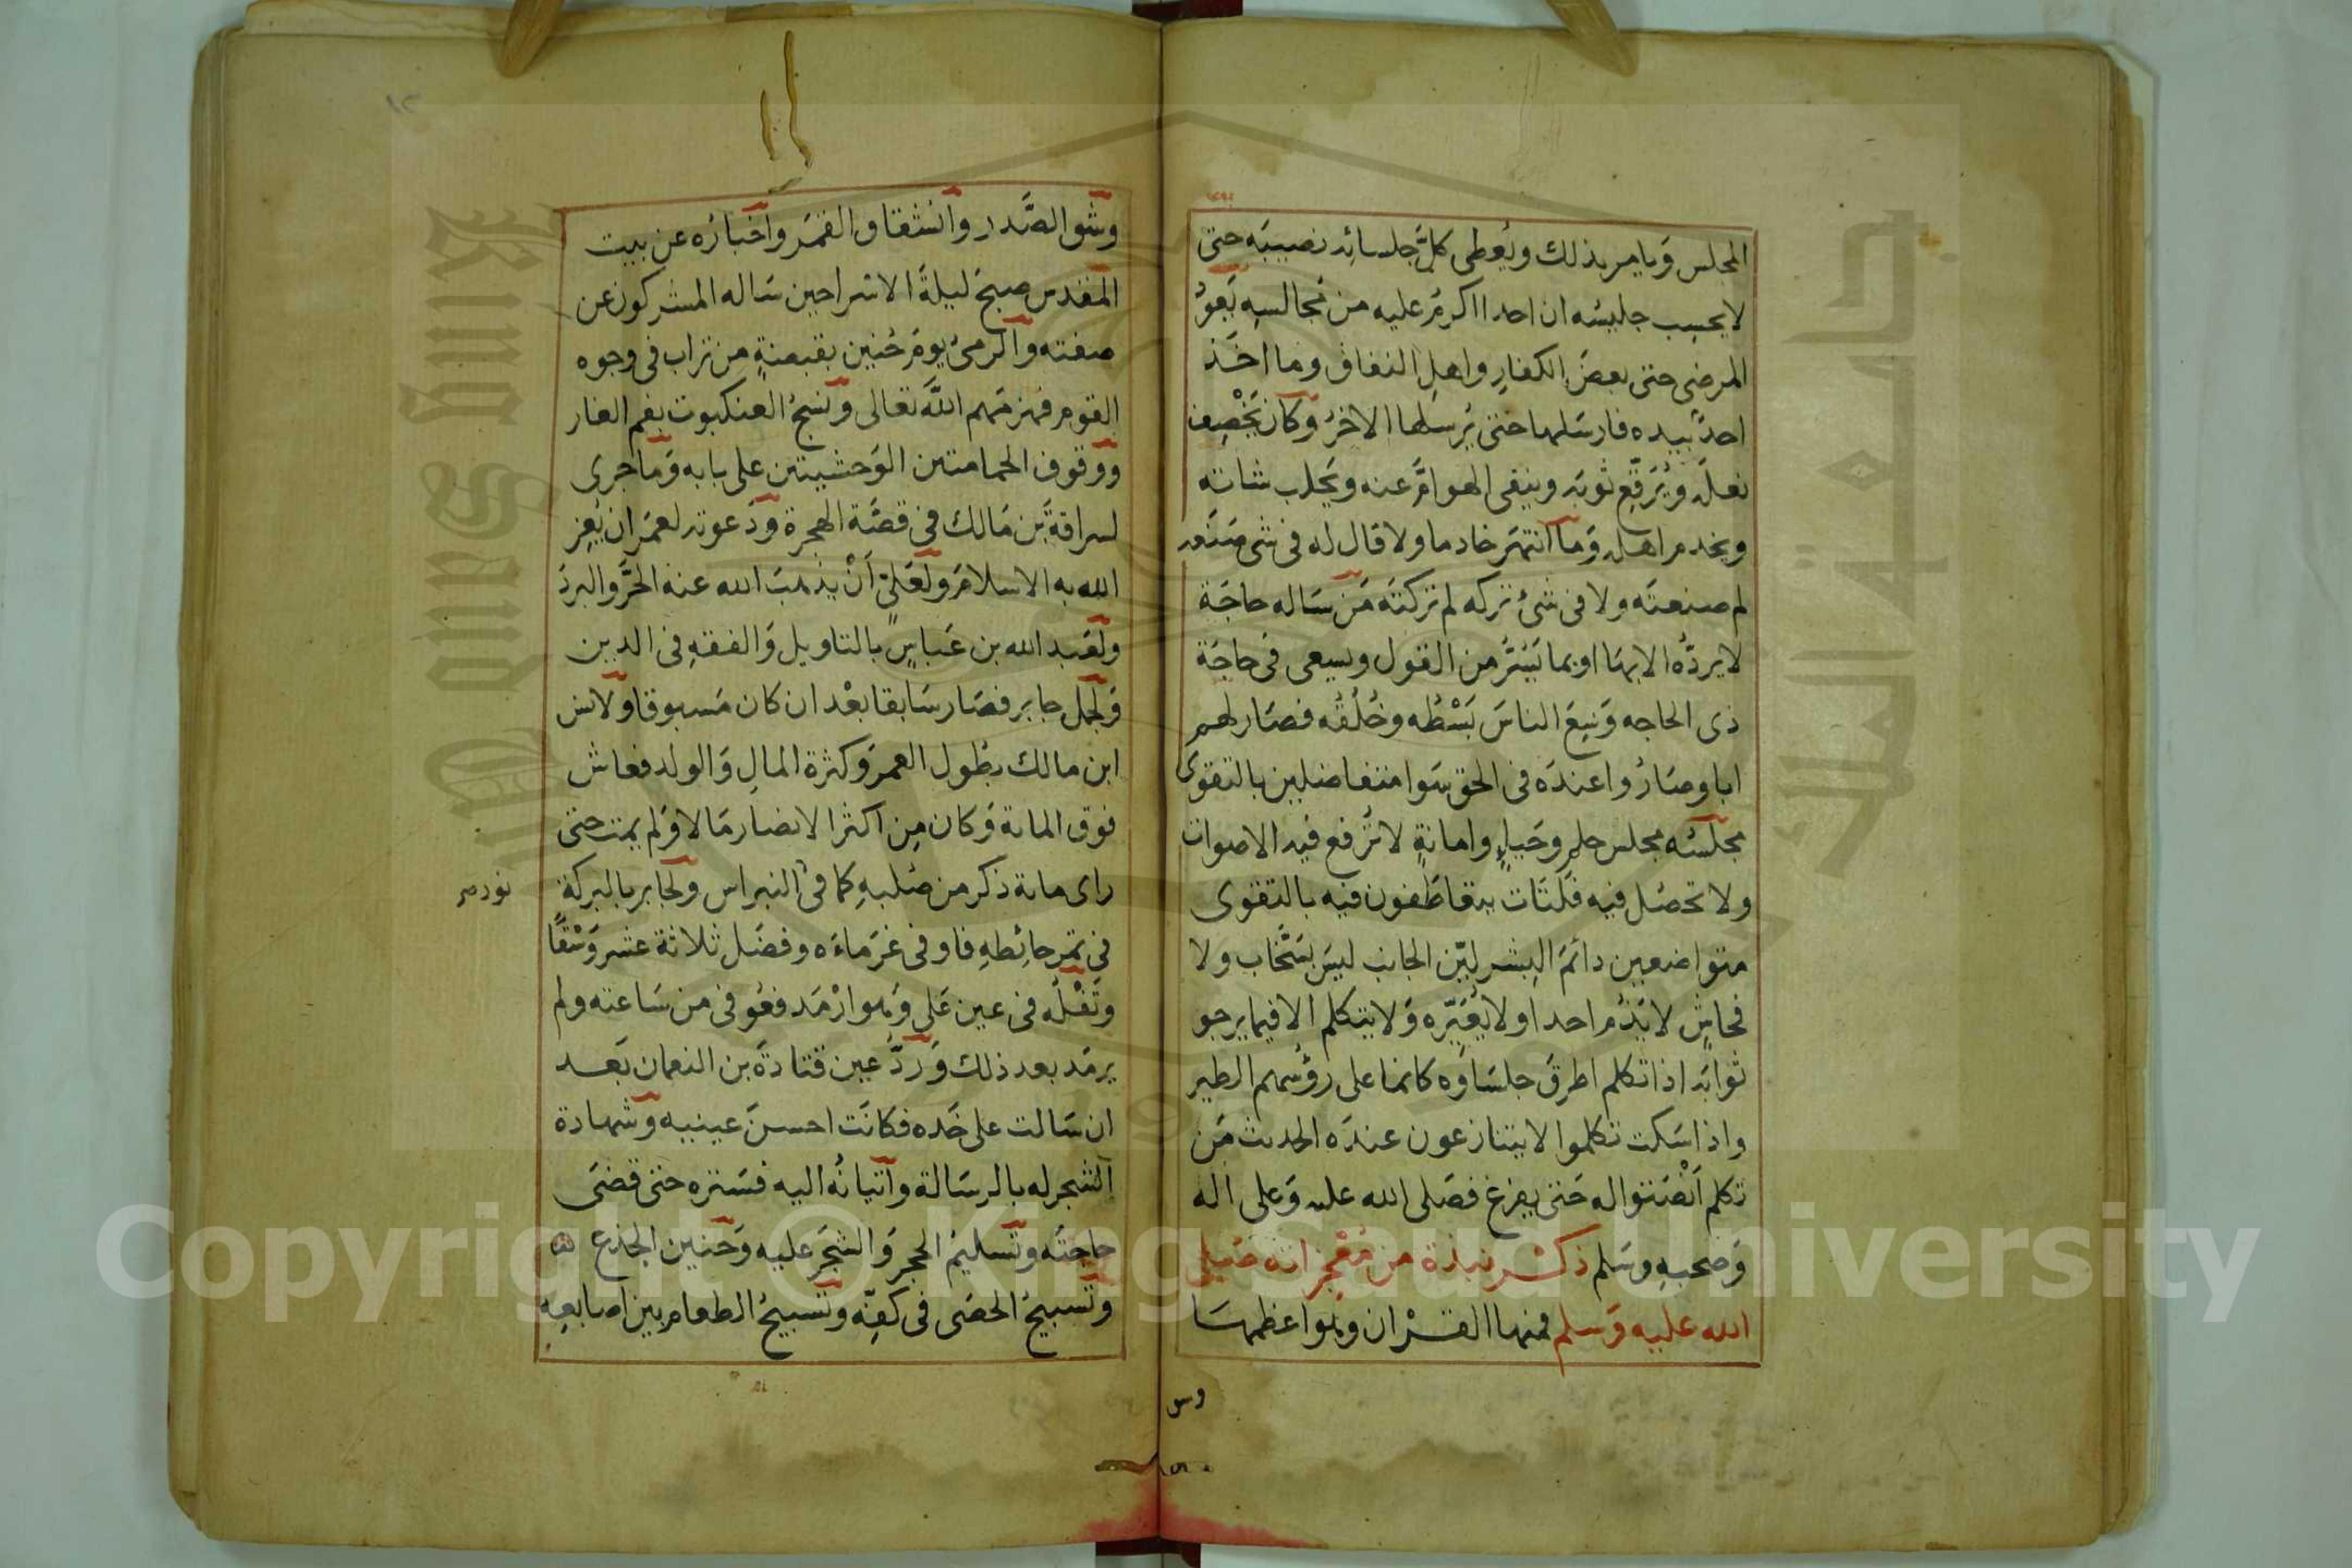 المجلس وَيامر بذلك ويُعطى كلَّ جلسائِه نصيبَه حتى
لا يحسِب جليسُه ان احدا اكرمُ عليه من مُجالسِهِ يَعودُ
المرضى حتى بعضَ الكفارِ واهلِ النفاق وما اخَذ
احدٌ بيده فارسَلها حتى يُرسلها الاخرُ وكان يَخْصِف
نعلَه ويُرَقّع ثوبَه وينقى الهوامَّ عنه ويَحلب شاته
ويخدم اهلَه وَما انتهَر خادما ولا قال له فى شى صَنَعه
لم صنعتَه ولا فى شئ تركه لم تركتَه مَن سَاله حاجَة
لا يردّه الا بهَا او بما تَيَسَّر من القول ويسعى فى حاجَة
ذى الحاجه وَسِعَ الناسَ بَسْطُه وخُلُقُه فصَار لهم
ابا وصَارُوا عندَه فى الحق سَوا متفاضلين بالتقوى
مجلسُه مجلس حلم وحَياءٍ وامانةٍ لا تُرفع فيه الاصوات
ولا تحصُل فيه فَلَتَات يتعاطَفون فيه بالتقوى
متواضعين دائمَ البِشر ليّن الجانب ليسَ بسَخّاب ولا
فحاشٍ لا يَذُم احدا ولا يُعَيّره وَلا يتكلم الا فيما يرجو
ثوابَه اذا تكلم اطرقَ جلسَاؤه كانما على رؤُسهم الطير
واذا سَكت تكلموا لا يتنازعون عندَه الحديث مَن
تكلم اَنْصَتوا له حَتى يفرغ فصَلى الله عليه وَعلى اله
وَصحبهِ وسَلم ذكْر نبذة من مُعْجزاته صَلى
الله عليه وَسلم فمنها القرْان وهوَ اعظمهَا
وس
وشق الصَّدر وانشقاق القمَر واخبارُه عن بيت
المقدس صبحَ ليلةَ الاسرا حين سَاله المشركون عن
صفته والرمىُ يومَ حُنين بقبضةٍ من تراب فى وجوه
القوم فهزمَهم اللَّه تعالى ونسْجُ العنكبوت بفم الغار
ووقوف الحمامتين الوَحشيتين على بابه وَما جرى
لسراقةَ بن مَالك فى قصَّة الهجرة ودَعوته لعمَر ان يُعِز
الله به الاسلامَ ولعَلىّ اَنْ يذهبَ الله عنهُ الحَرَّ والبردَ
ولعَبد الله بن عَباسٍ بالتاويل وَالفقهِ فى الدين
وَلجمل جابر فصَار سَابقا بعْد ان كان مَسبوقا ولانس
ابن مالك بطُول العمرَ وكثرة المالِ وَالولد فعاش
فوق المائة وَكان مِن اكثر الانصَار مَالا وَلم يمت حتى
راى مائة ذكر من صُلبهِ كما فى النبراس ولجابر بالبركة
فى تمر حائِطهِ فاوفى غرَماءَه وفضَل ثلاثة عشر وَسْقًا
وتَفْلُه فى عين عَلى وَهو ارْمَد فعُوفى من سَاعته ولم
يرمَد بعد ذلك وَردّ عين قتادةَ بن النعمان بَعد
ان سَالت على خَده فكانَت احسنَ عينيه وشهادة
الشجر له بالرسَالة واتيانُه اليه فسَتره حتى قضَى
حاجتَه وتسليمُ الحجر وَالشجَر عليه وَحنين الجذع
وتَسبيحُ الحصَى فى كفِّه وتسبيحُ الطعام بين اصَابعِهِ